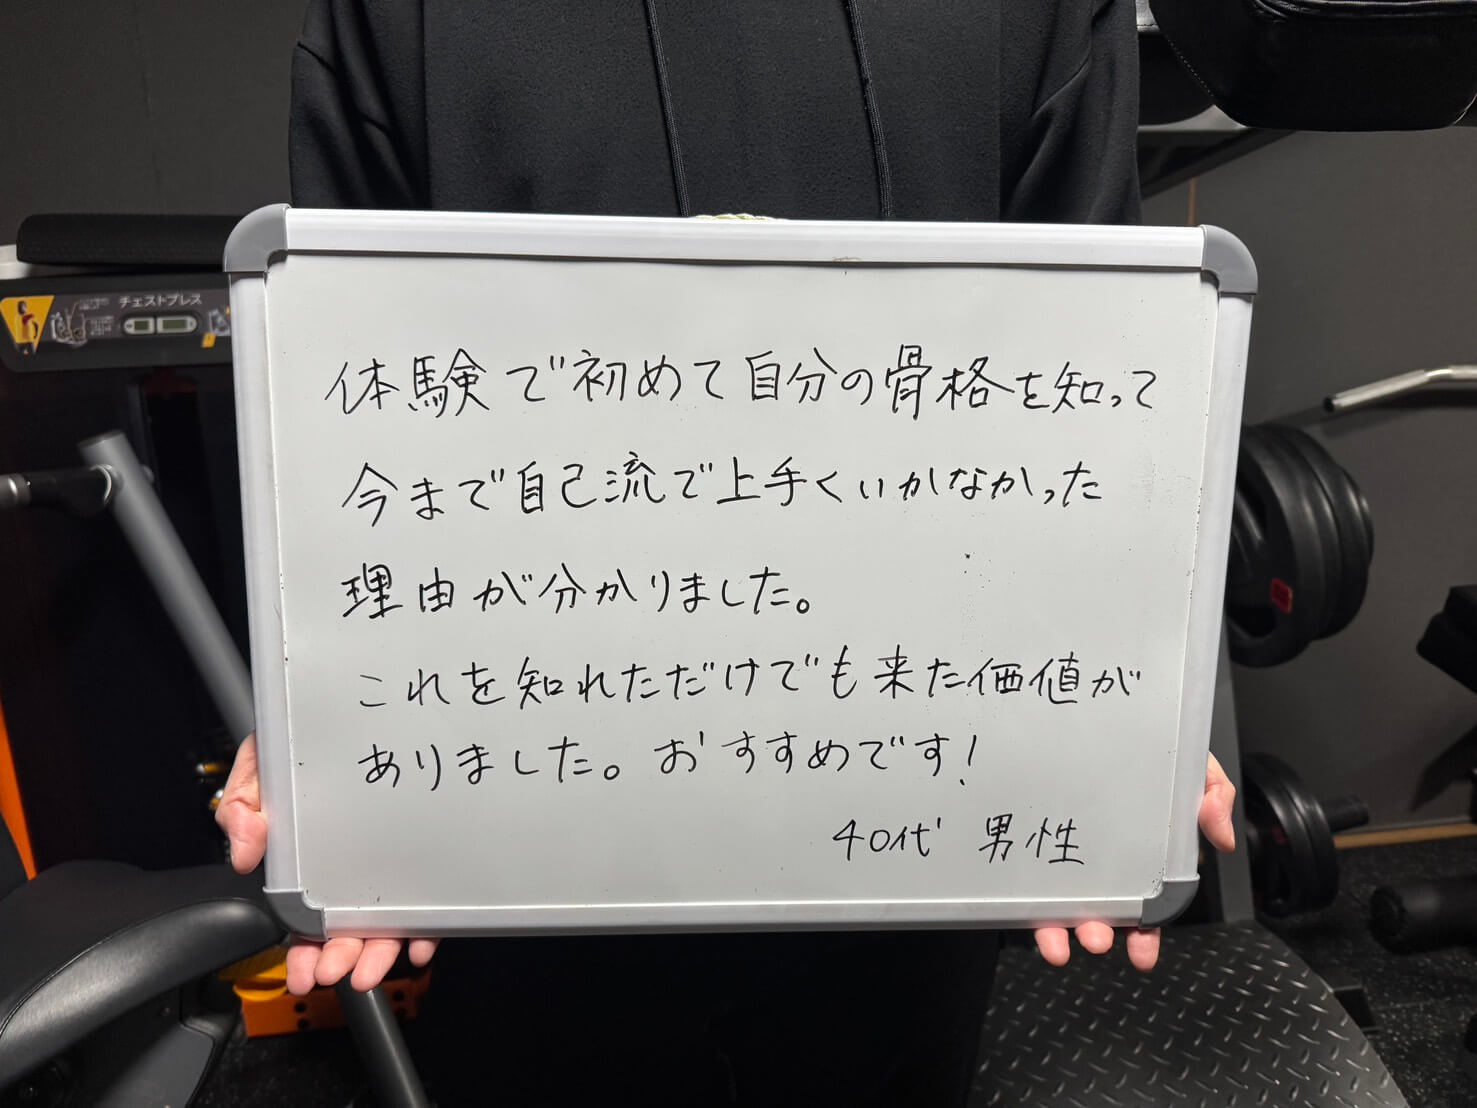 チェストプレス
体験で初めて自分の骨格を知って
今まで自己流で上手くいかなかった
理由が分かりました。
これを知れただけでも来た価値が
ありました。おすすめです!
40代 男性